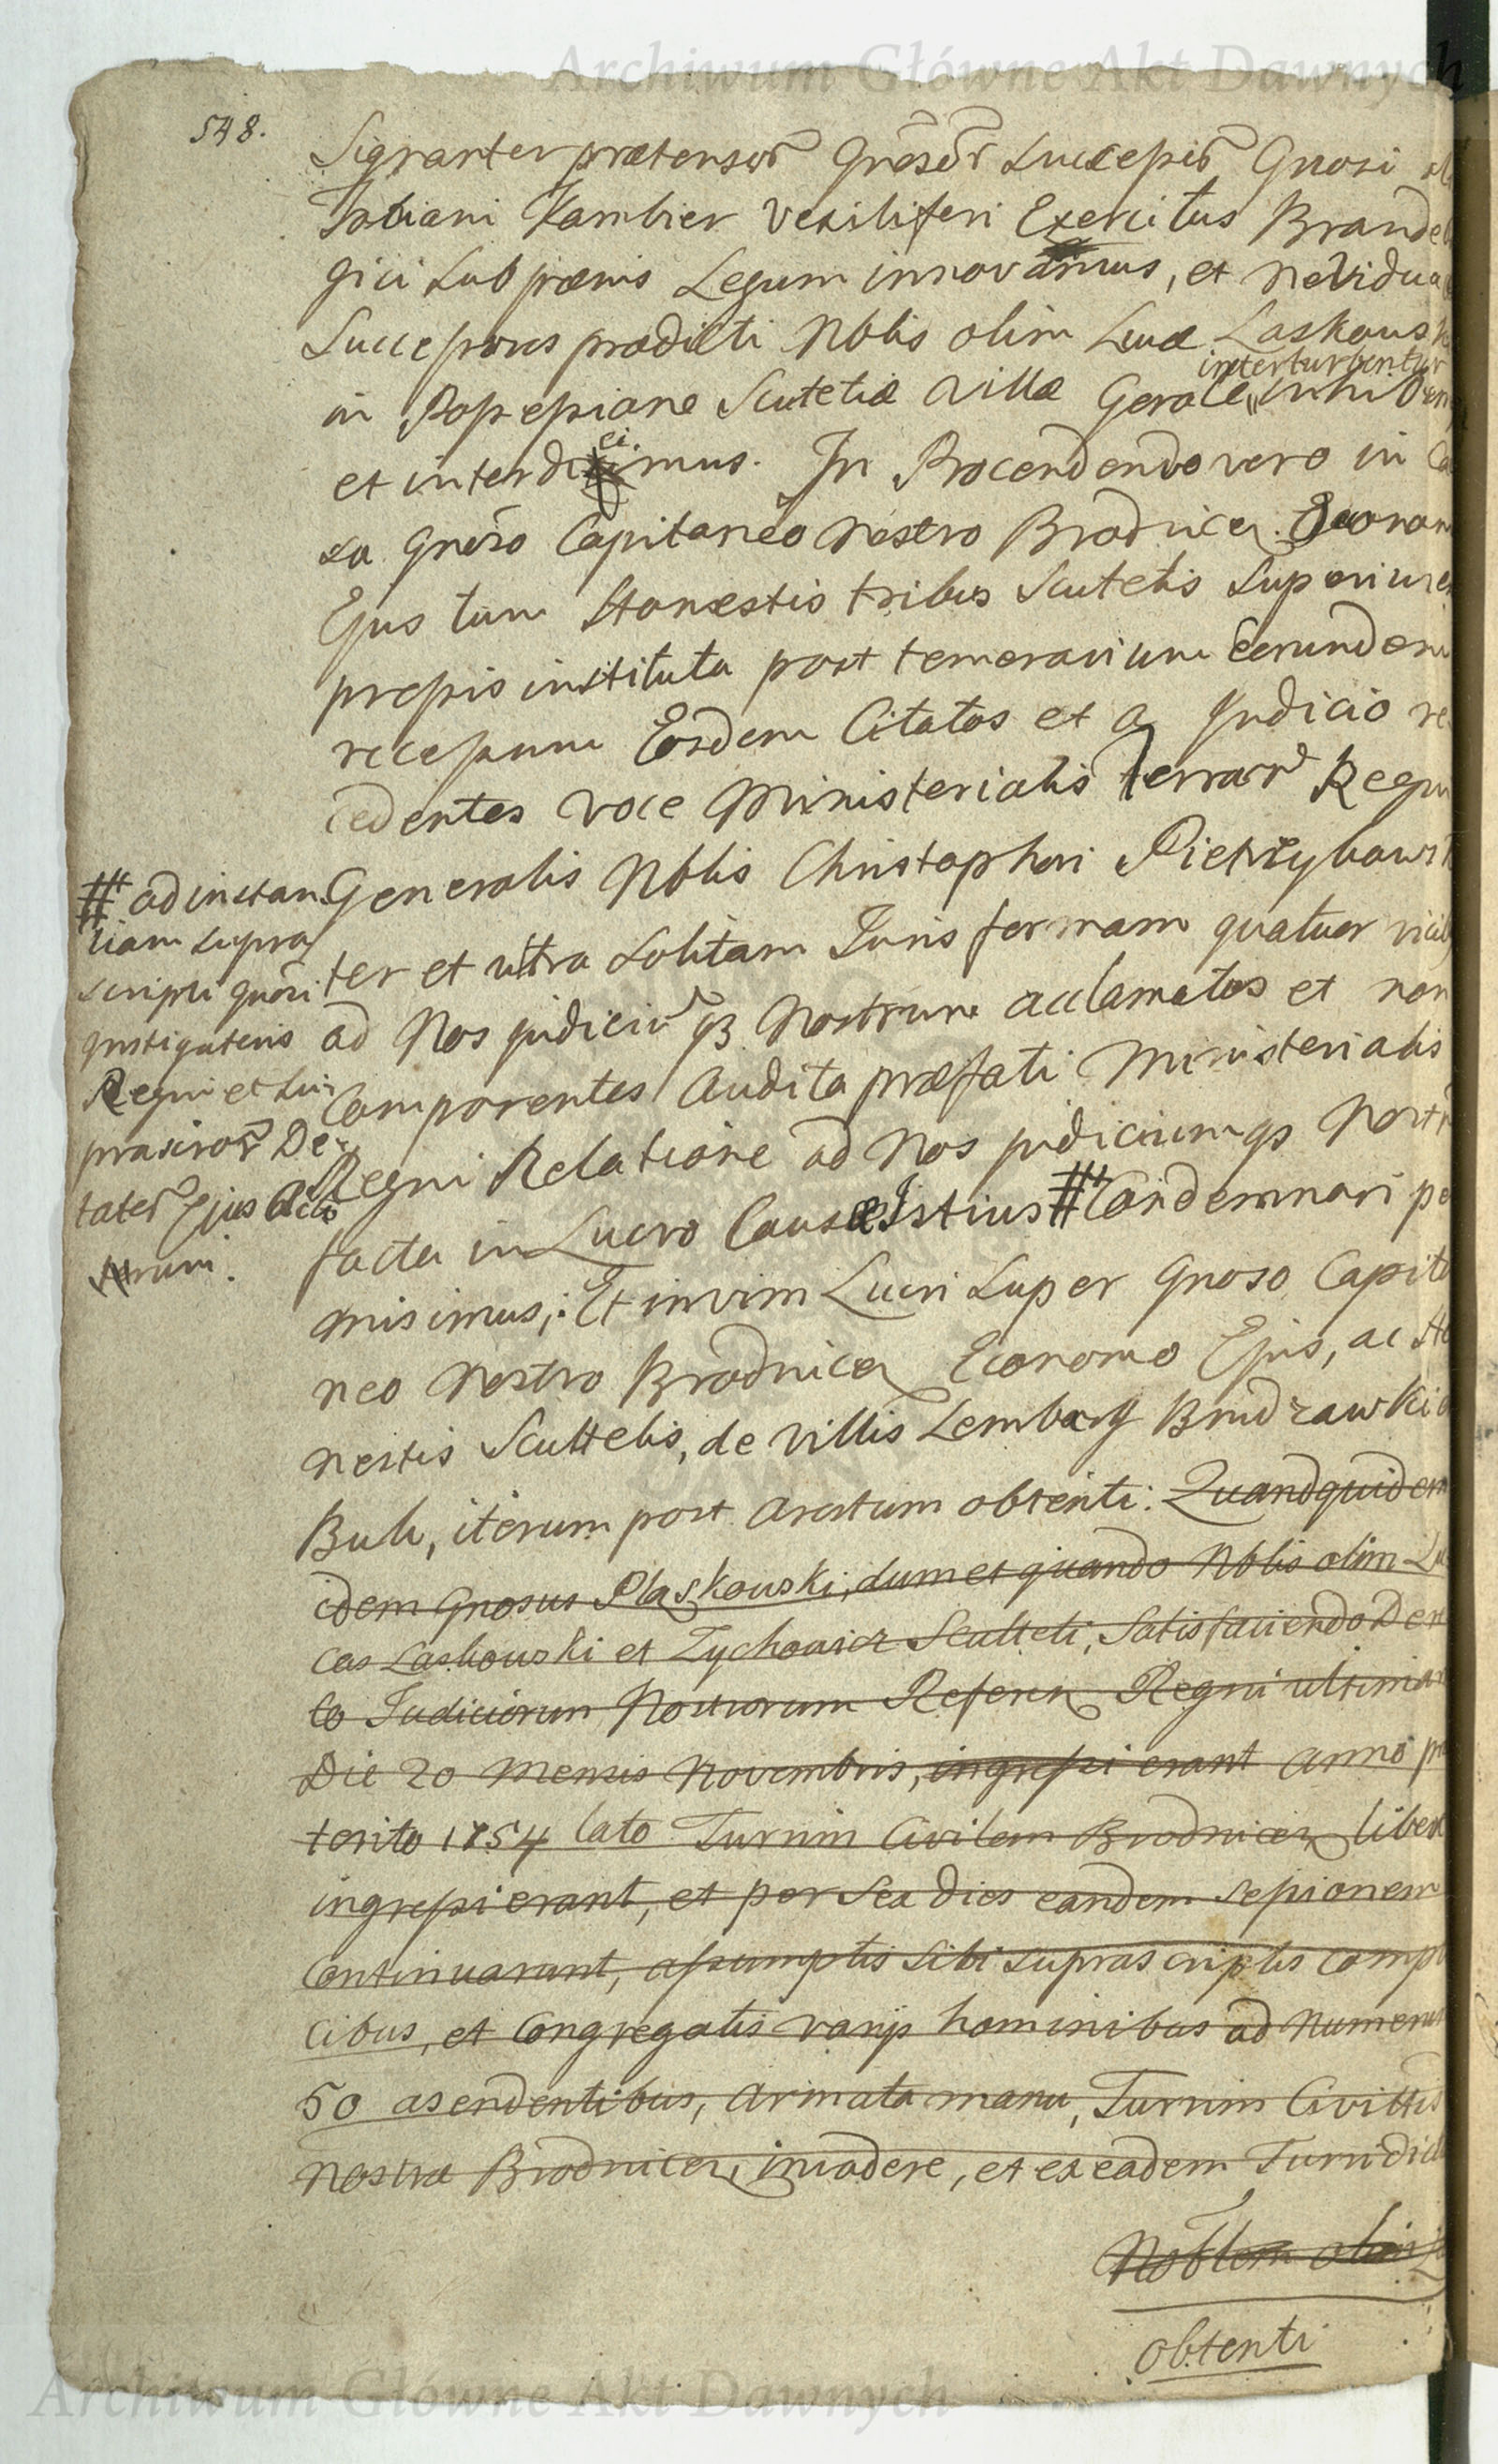 Archiwum Główne Akt Dawnych
548.
Signanter prætensor͂ Gn͂sor͂ Successor͂ Gnosi
Kambier Vexiliferi Exercitus Brande
gici sub pœnis Legum innovamus, et ne Vidua
Successores prædicti Nblis olim Lucæ Laskows
interturbentur
in Possessione Scutetiæ Villæ inhibem
ci.
et interdicimus. In Procendendo vero in Ca
sa Gnoso Capitaneo Nostro Brodnicen Œconom
Ejus tum Honestis tribus Scutetis Superius ex
pressis instituta post temerarium eorundem
recessum Eosdem Citatos et a Judicio re
cedentes voce Ministerialis Terrarr͂ Regni
# ad instan
Generalis Nblis Christophori Pietrzykowsk
tiam supra
scripti gnosi
ter et ultra solitam Juris formam quatuor vicib
Instigatoris
ad Nos judiciu͂ qз Nostrum acclamatos et non
Regni et sui
Comparentes Audita præfati Ministerialis
prascror͂ De-
Regni Relatione ad Nos judiciumqз Nostr
tater͂ Ejus Acto
facta in Lucro Causæ Istius # Condemnari per
rum.
misimus; Et in vim Lucri super Gnoso Capita
neo Nostro Brodnicen Economo Ejus, ac Ho
nestis Scultetis, de Villis Lembarg Brudzawki
Buk, iterum post Arestum obtenti: Quandoquidem
idem Gnosus Plaskowski, dum et quando Nblis olim Lu
cas Laskowski et Zychowicz Sculteti, Satisfaciendo Decre
to Judiciorum Nostrorum Referen Regni ultimar
Die 20 Mensis Novembris, ingressi erant Anno præ
terito 1754 lato Turrim Civilem Brodnicen libere
ingressi erant, et per sex dies eandem sessionem
Continuarant, assumptis sibi suprascriptis compli
cibus, et Congregatis varijs hominibus ad numerum
50 asendentibus, armata manu, Turrim Civittis
Nostræ Brodnicen, invadere, et ex eadem Turri dict
Nobilem olim
obtenti
Archiwum Główne Akt Dawnych